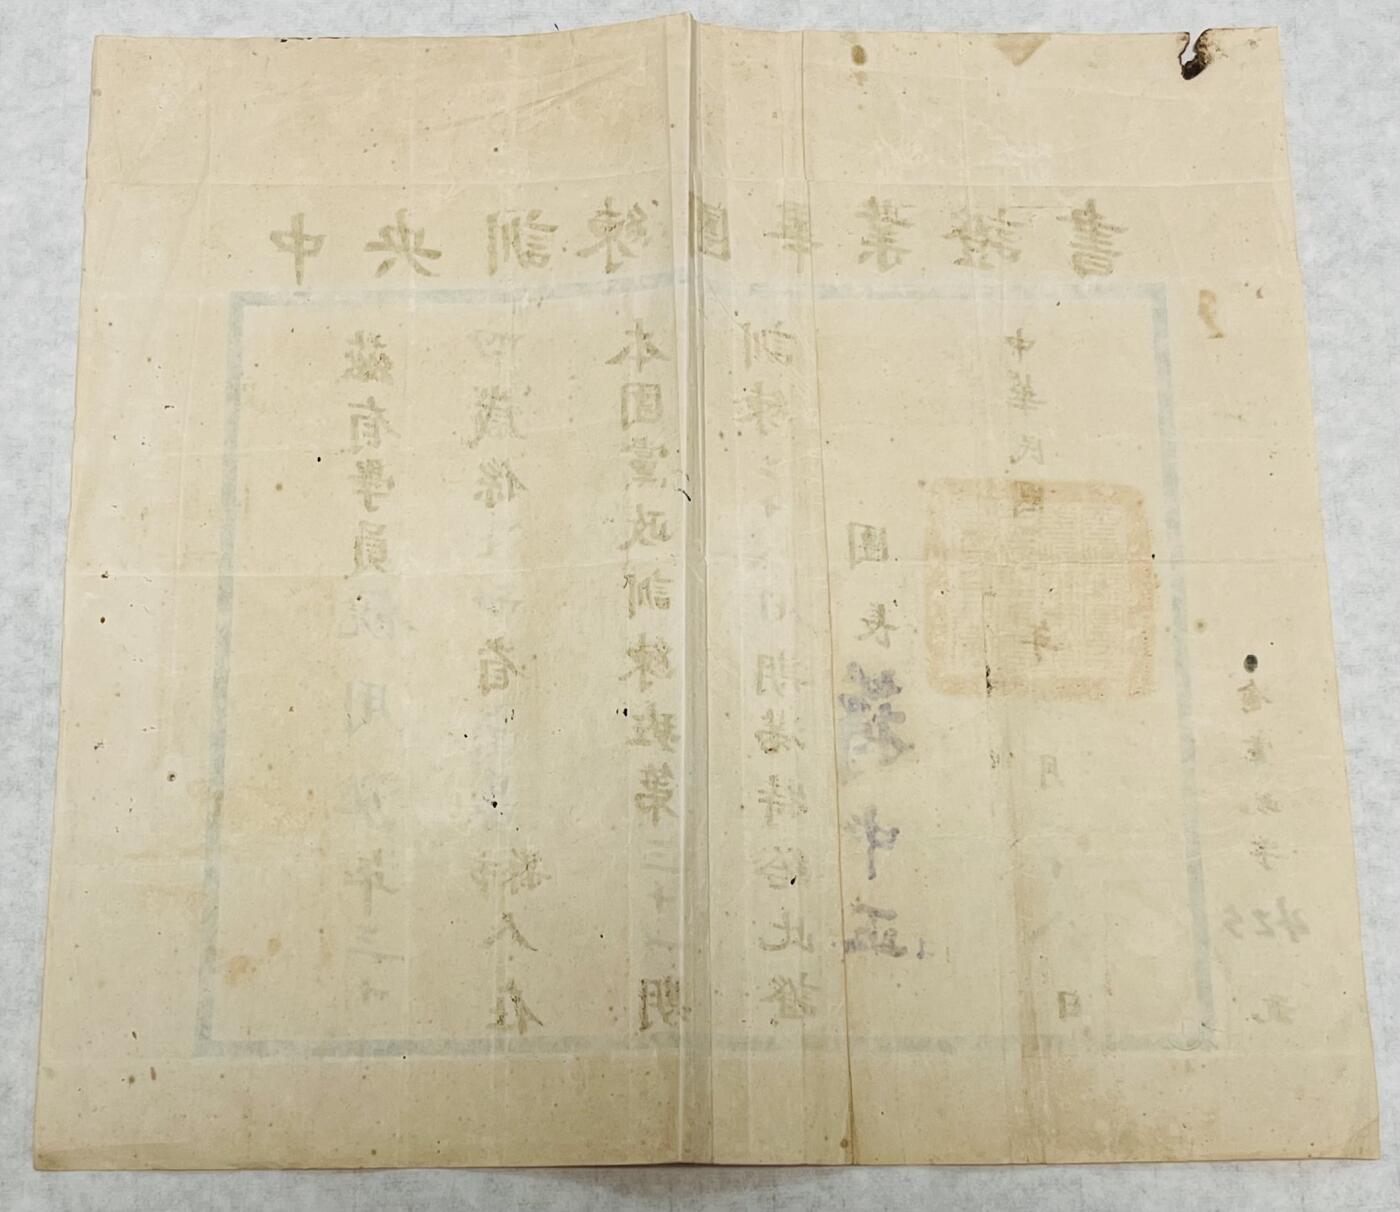 中央訓練團畢業證書
茲有學員周年三十
四歲係省縣市人在
本團黨政訓練班第三十期
訓練期滿特給此證
團長蔣中正
中華民國年月日
字425號